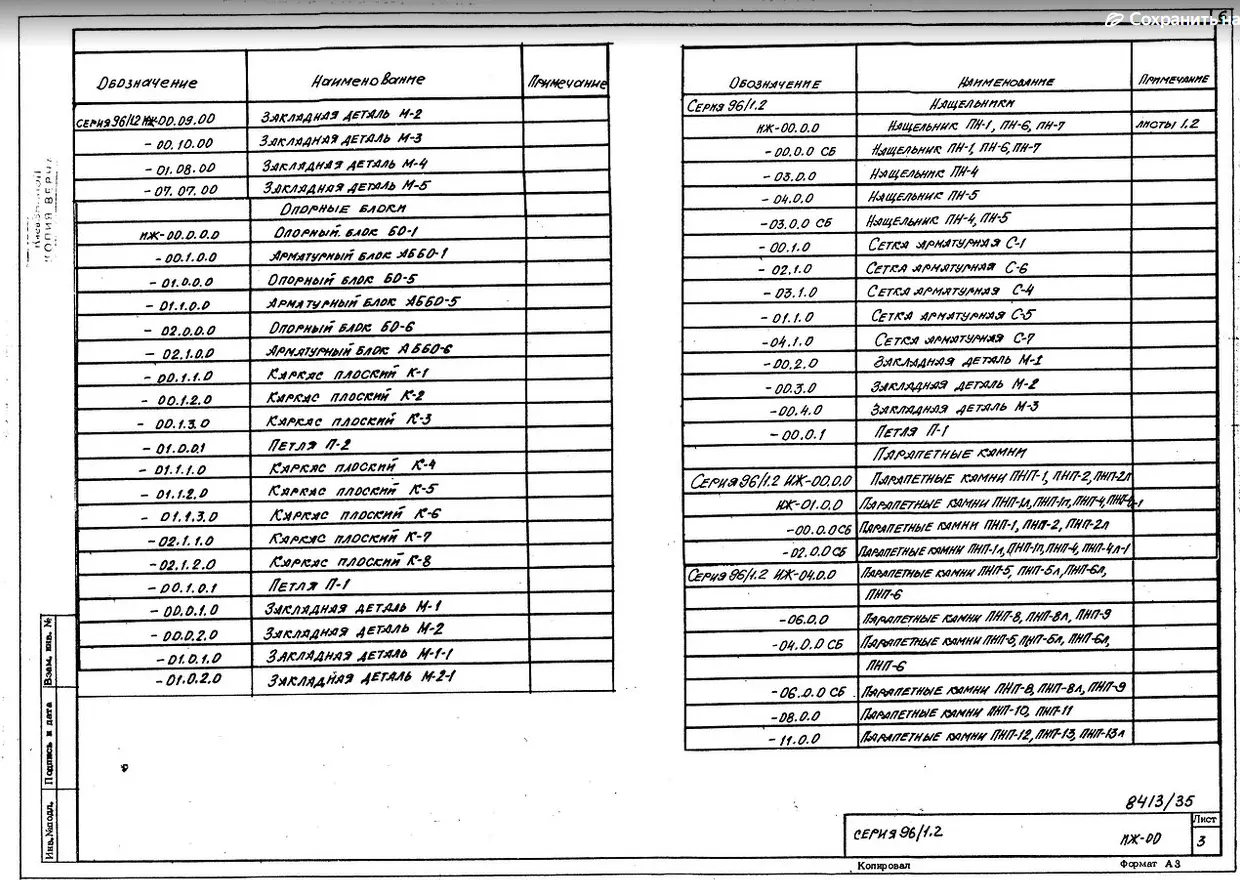 6
Сохранить на
Обозначение Наименование Примечание
Серия 96/1.2 ИЖ-00.09.00 Закладная деталь М-2
-00.10.00 Закладная деталь М-3
-01.08.00 Закладная деталь М-4
-07.07.00 Закладная деталь М-5
Опорные блоки
ИЖ-00.0.0.0 Опорный блок БО-1
-00.1.0.0 Арматурный блок АББО-1
-01.0.0.0 Опорный блок БО-5
-01.1.0.0 Арматурный блок АББО-5
-02.0.0.0 Опорный блок БО-6
-02.1.0.0 Арматурный блок АББО-6
-00.1.1.0 Каркас плоский К-1
-00.1.2.0 Каркас плоский К-2
-00.1.3.0 Каркас плоский К-3
-01.0.0.1 Петля П-2
-01.1.1.0 Каркас плоский К-4
-01.1.2.0 Каркас плоский К-5
-01.1.3.0 Каркас плоский К-6
-02.1.1.0 Каркас плоский К-7
-02.1.2.0 Каркас плоский К-8
-00.1.0.1 Петля П-1
-00.0.1.0 Закладная деталь М-1
-00.0.2.0 Закладная деталь М-2
-01.0.1.0 Закладная деталь М-1-1
-01.0.2.0 Закладная деталь М-2-1
Обозначение Наименование Примечание
Серия 96/1.2 Нащельники
ИЖ-00.0.0 Нащельник ПН-1, ПН-6, ПН-7 листы 1.2
-00.0.0 СБ Нащельник ПН-1, ПН-6, ПН-7
-03.0.0 Нащельник ПН-4
-04.0.0 Нащельник ПН-5
-03.0.0 СБ Нащельник ПН-4, ПН-5
-00.1.0 Сетка арматурная С-1
-02.1.0 Сетка арматурная С-6
-03.1.0 Сетка арматурная С-4
-01.1.0 Сетка арматурная С-5
-04.1.0 Сетка арматурная С-7
-00.2.0 Закладная деталь М-1
-00.3.0 Закладная деталь М-2
-00.4.0 Закладная деталь М-3
-00.0.1 Петля П-1
Парапетные камни
Серия 96/1.2 ИЖ-00.0.0 Парапетные камни ПНП-1, ПНП-2, ПНП-2л
ИЖ-01.0.0 Парапетные камни ПНП-1л, ПНП-1п, ПНП-4, ПНП-4л-1
-00.0.0 СБ Парапетные камни ПНП-1, ПНП-2, ПНП-2л
-02.0.0 СБ Парапетные камни ПНП-1л, ПНП-1п, ПНП-4, ПНП-4л-1
Серия 96/1.2 ИЖ-04.0.0 Парапетные камни ПНП-5, ПНП-5л, ПНП-6л,
ПНП-6
-06.0.0 Парапетные камни ПНП-8, ПНП-8л, ПНП-9
-04.0.0 СБ Парапетные камни ПНП-5, ПНП-5л, ПНП-6л,
ПНП-6
-06.0.0 СБ Парапетные камни ПНП-8, ПНП-8л, ПНП-9
-08.0.0 Парапетные камни ПНП-10, ПНП-11
-11.0.0 Парапетные камни ПНП-12, ПНП-13, ПНП-13л
КОПИЯ ВЕРНА
Взам. инв. №
Подпись и дата
Инв.№подл.
8413/35
Серия 96/1.2 ИЖ-00 Лист
3
Копировал Формат А3